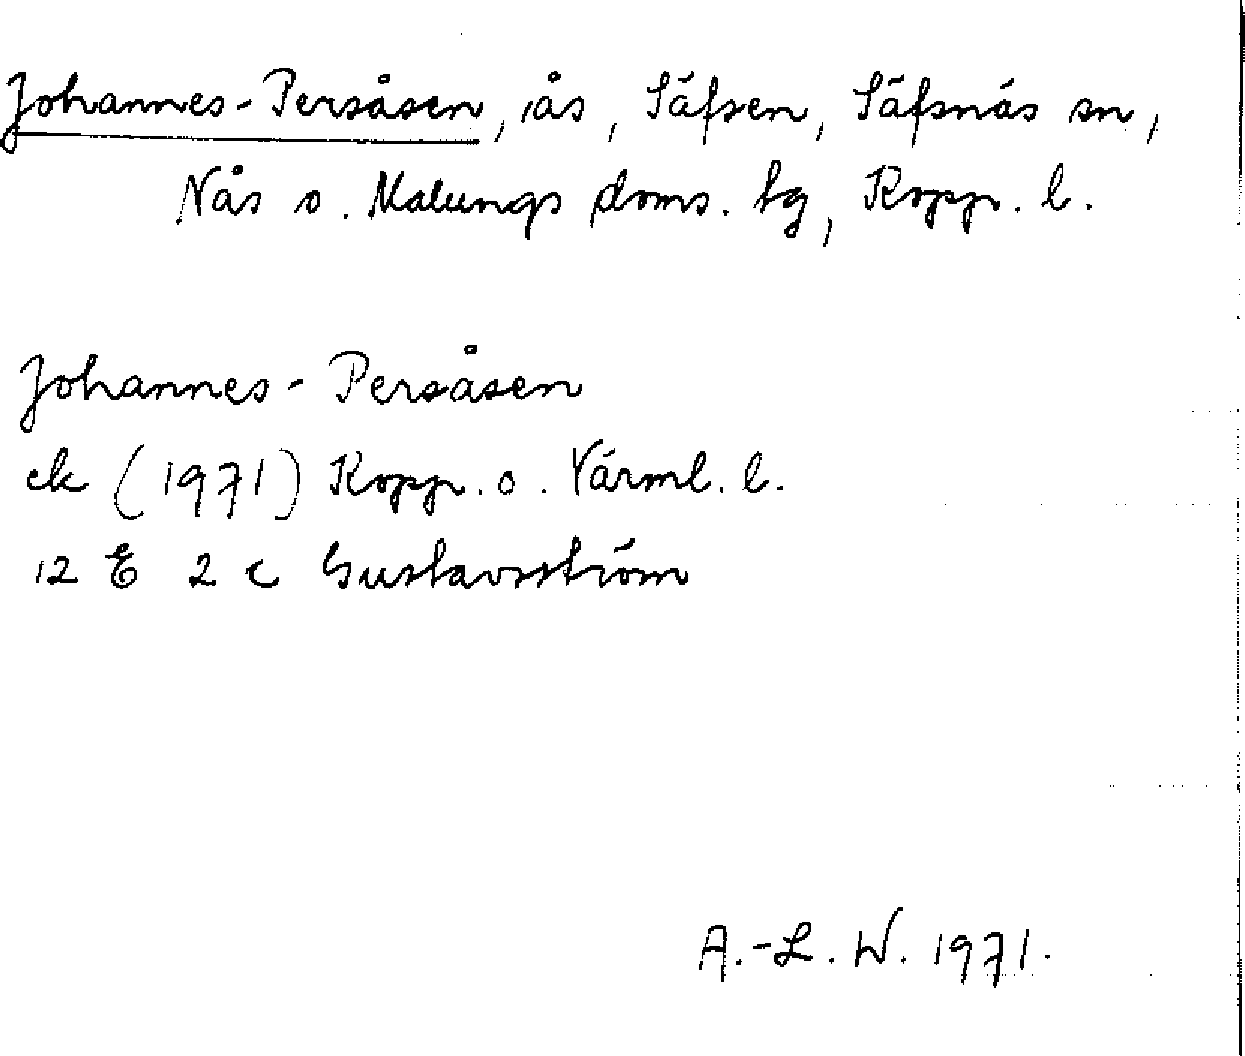 Johannes-Persåsen, ås, Säfsen, Säfsnäs sn,
Nås o. Malungs doms. tg, Kopp. l.
Johannes-Persåsen
ek (1971) Kopp. o. Värml. l.
12 E 2 c Gustavsström
A.-L. W. 1971.